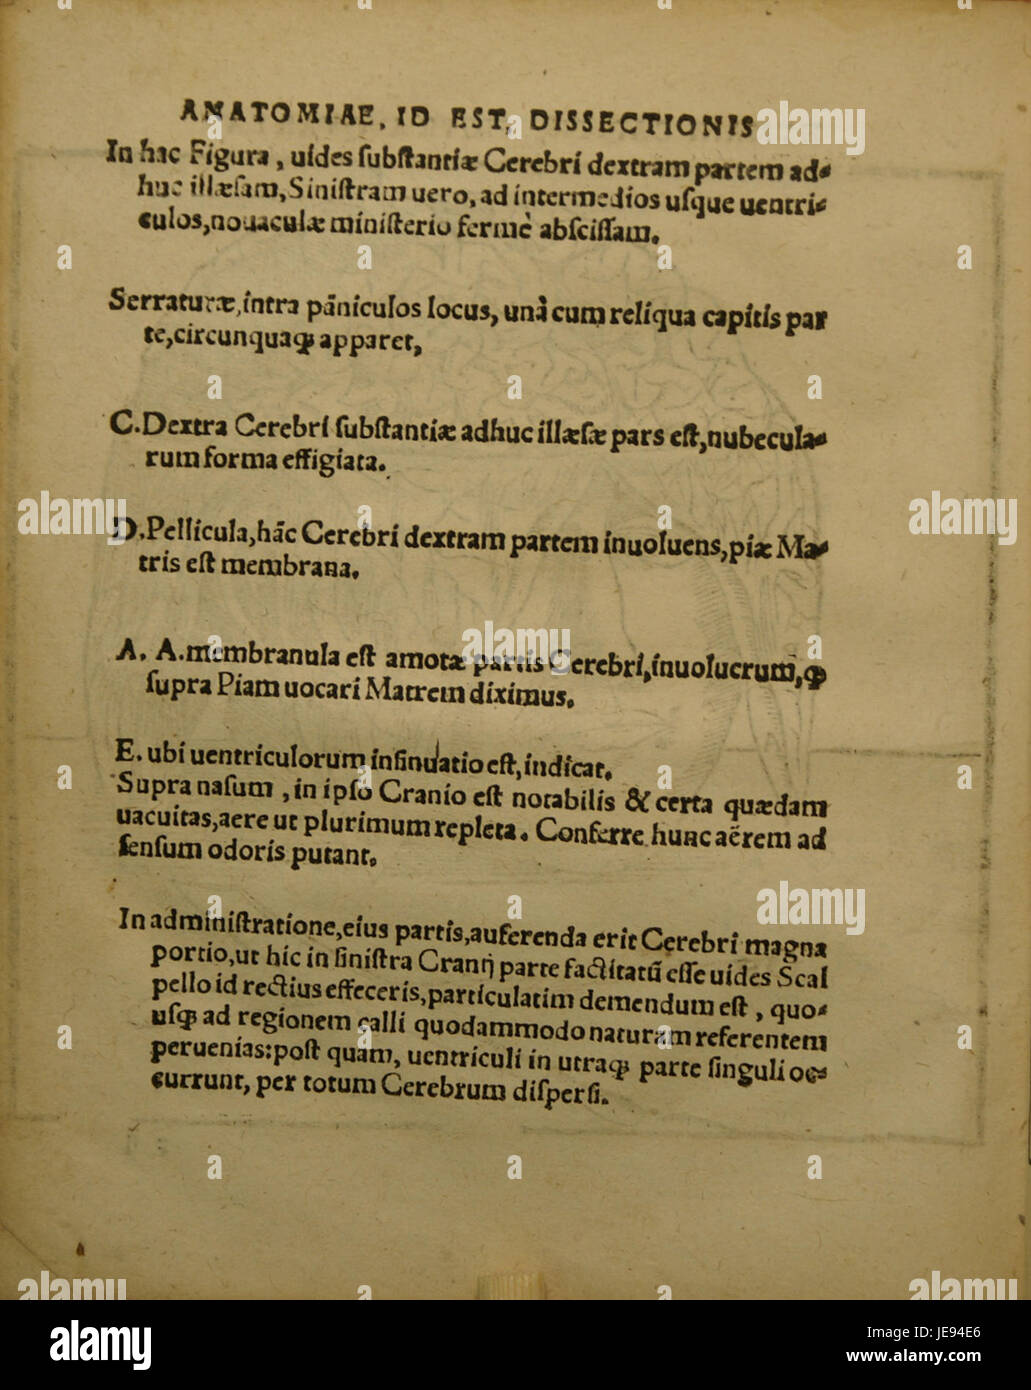 ANATOMIAE, ID EST, DISSECTIONIS
In hac Figura, uides ſubſtantiæ Cerebri dextram partem ad-
huc illæſam, Siniſtram uero, ad intermedios uſque uentri-
culos, nouaculæ miniſterio fermè abſciſſam.
Serraturæ, intra pāniculos locus, unà cum reliqua capitis par
te, circunquaqꝫ apparet,
C. Dextra Cerebri ſubſtantiæ adhuc illæſæ pars eſt, nubecula-
rum forma effigiata.
D. Pellicula, hāc Cerebri dextram partem inuoluens, piæ Ma-
tris eſt membrana.
A. A. membranula eſt amotæ partis Cerebri, inuolucrum, qꝫ
ſupra Piam uocari Matrem diximus.
E. ubi uentriculorum inſinuatio eſt, indicat.
Supra naſum, in ipſo Cranio eſt notabilis & certa quædam
uacuitas, aere ut plurimum repleta. Conferre hunc aërem ad
ſenſum odoris putant.
In adminiſtratione, eius partis, auferenda erit Cerebri magna
portio, ut hic in ſiniſtra Cranij parte factitatū eſſe uides Scal
pello id rectius effeceris, particulatim demendum eſt, quo-
uſqꝫ ad regionem calli quodammodo naturam referentem
peruenias: poſt quam, uentriculi in utraqꝫ parte ſinguli oc-
currunt, per totum Cerebrum diſperſi.
alamy
alamy
alamy
alamy
alamy
alamy
alamy
alamy
alamy
Image ID: JE94E6
www.alamy.com